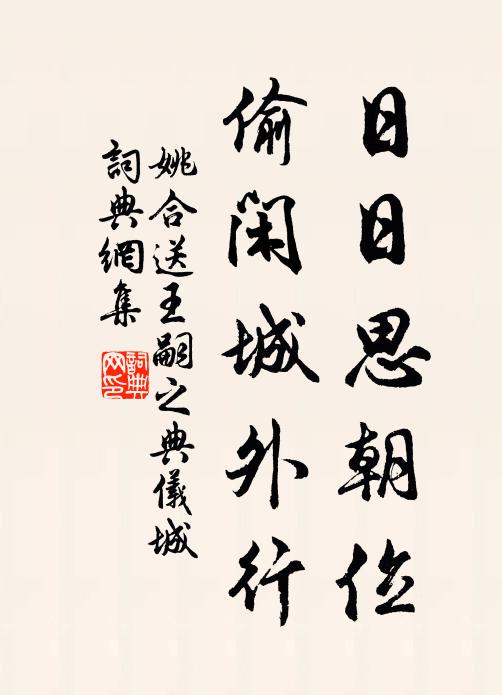 日日思朝位
偷閑城外行
姚合送王嗣之典儀城
詞典網集
詞典網印